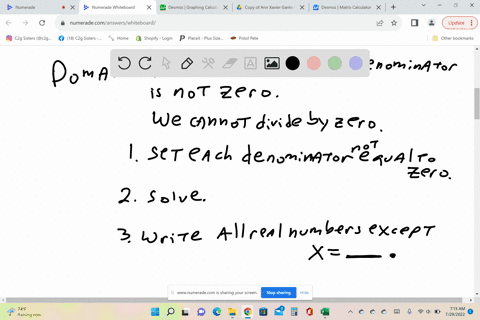 Numerade
Numerade Whiteboard
Desmos | Graphing Calculat
Copy of Ann Xavier Gante
Desmos | Matrix Calculator
numerade.com/answers/whiteboard/
Update
C2g Sisters (@c2g...
(18) C2g Sisters -...
Home
Shopify
Pinterest
Placeit - Plus Size...
Pistol Pete
Other bookmarks
DOMA
enominator
is not zero.
We cannot divide by zero.
1. Set each denominator not equal to
zero.
2. Solve.
3. Write All real numbers except
X = ___.
www.numerade.com is sharing your screen.
Stop sharing
Hide
74°F
Raining now
7:15 AM
1/29/2022